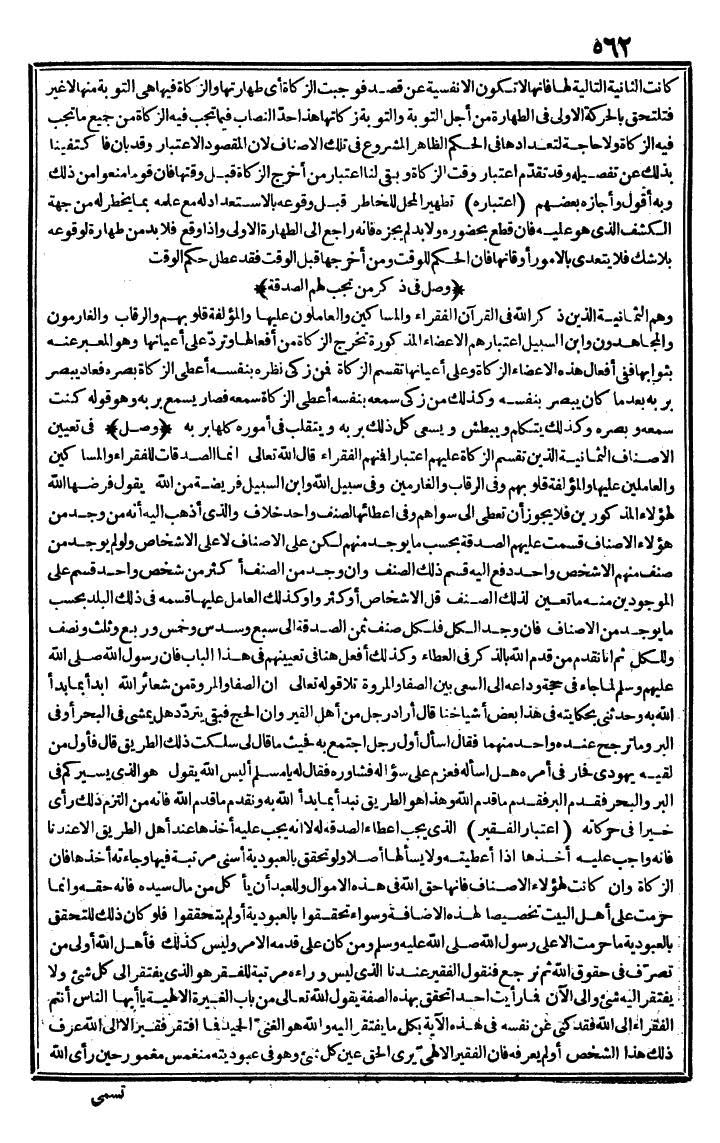 ٥٦٢
كانت الثانية التالية لها فانها لا تكون الانفسية عن قصد فوجبت الزكاة أى طهارتها والزكاة فيها هى التوبة منها لاغير
فتلتحق بالحركة الاولى فى الطهارة من أجل التوبة والتوبة زكاتها هذا حد النصاب فيما تجب فيه الزكاة من جميع ما تجب
فيه الزكاة ولا حاجة لتعدادها فى الحكم الظاهر المشروع فى تلك الاصناف لان المقصود الاعتبار وقد بان فاكتفينا
بذلك عن تفصيله وقد تقدّم اعتبار وقت الزكاة وبقى لنا اعتبار من أخرج الزكاة قبل وقتها فان قوما منعوا من ذلك
وبه أقول وأجازه بعضهم (اعتباره) تطهير المحل للخاطر قبل وقوعه بالاستعداد له مع علمه بما يخطر له من جهة
الكشف الذى هو عليه فان قطع بحضوره ولابد لم يجزه فانه راجع الى الطهارة الاولى واذا وقع فلا بد من طهارة لوقوعه
بلاشك فلا يتعدى بالامور أوقاتها فان الحكم للوقت ومن أخرجها قبل الوقت فقد عطل حكم الوقت
﴿وصل فى ذكر من تجب لهم الصدقة﴾
وهم الثمانية الذين ذكر الله فى القرآن الفقراء والمساكين والعاملون عليها والمؤلفة قلوبهم والرقاب والغارمون
والمجاهدون وابن السبيل اعتبارهم الاعضاء المذكورة تخرج الزكاة من أفعالها وتردّ على أعيانها وهو المعبر عنه
بثوابها ففى أفعال هذه الاعضاء الزكاة وعلى أعيانها تقسم الزكاة فمن زكى نظره بنفسه أعطى الزكاة بصره فعاد يبصر
بربه بعد ما كان يبصر بنفسه وكذلك من زكى سمعه بنفسه أعطى الزكاة سمعه فصار يسمع بربه وهو قوله كنت
سمعه وبصره وكذلك يتكلم ويبطش ويسعى كل ذلك بربه ويتقلب فى أموره كلها بربه ﴿وصل﴾ فى تعيين
الاصناف الثمانية الذين تقسم الزكاة عليهم اعتبارا فمنهم الفقراء قال الله تعالى انما الصدقات للفقراء والمساكين
والعاملين عليها والمؤلفة قلوبهم وفى الرقاب والغارمين وفى سبيل الله وابن السبيل فريضة من الله يقول فرضها الله
لهؤلاء المذكورين فلا يجوز أن تعطى الى سواهم وفى اعطائها لصنف واحد خلاف والذى أذهب اليه أنه من وجد من
هؤلاء الاصناف قسمت عليهم الصدقة بحسب ما يوجد منهم لكن على الاصناف لا على الاشخاص ولو لم يوجد من
صنف منهم الا شخص واحد دفع اليه قسم ذلك الصنف وان وجد من الصنف أكثر من شخص واحد قسم على
الموجودين منه ما تعين لذلك الصنف قل الاشخاص أو كثروا وكذلك العامل عليها قسمه فى ذلك البلد بحسب
ما يوجد من الاصناف فان وجد الكل فلكل صنف ثمن الصدقة الى سبع وسدس وخمس وربع وثلث ونصف
وللكل ثم انا نقدم من قدم الله بالذكر فى العطاء وكذلك أفعل هنا فى تعيينهم فى هذا الباب فان رسول الله صلى الله
عليه وسلم لما جاء فى حجة وداعه الى السعى بين الصفا والمروة تلا قوله تعالى ان الصفا والمروة من شعائر الله ابدأ بما بدأ
الله به وحدثنى بحكايته فى هذا بعض أشياخنا قال أراد رجل من أهل القيروان الحج فبقى يتردّد هل يمشى فى البحر أو فى
البر وما ترجح عنده واحد منهما فقال اسأل أول رجل اجتمع به فحيث ما قال لى سلكت ذلك الطريق قال فأول من
لقيه يهودى فحار فى أمره هل اسأله فعزم على سؤاله فشاوره فقال له يا مسلم أليس الله يقول هو الذى يسيركم فى
البر والبحر فقدم البر فقدم ما قدم الله وهذا هو الطريق نبدأ بما بدأ الله به ونقدم ما قدم الله فانه من التزم ذلك رأى
خيرا فى حركاته (اعتبار الفقير) الذى يجب اعطاء الصدقة له لا انه يجب عليه أخذها عند أهل الطريق الا عندنا
فانه واجب عليه أخذها اذا أعطيته ولا يسألها أصلا ولو تحقق بالعبودية أسنى مرتبة فيها وجاءته أخذها فان
الزكاة وان كانت لهؤلاء الاصناف فانها حق الله فى هذه الاموال وللعبد أن يأكل من مال سيده فانه حقه وانما
حرمت على أهل البيت تخصيصا لهذه الاضافة وسواء تحققوا بالعبودية أو لم يتحققوا فلو كان ذلك للتحقق
بالعبودية ما حرمت الا على رسول الله صلى الله عليه وسلم ومن كان على قدمه الامر وليس كذلك فأهل الله أولى من
تصرّف فى حقوق الله ثم نرجع فنقول الفقير عندنا الذى ليس وراءه مرتبة للفقر هو الذى يفتقر الى كل شئ ولا
يفتقر اليه شئ والى الآن فما رأيت احدا تحقق بهذه الصفة يقول الله تعالى من باب الغيرة الالهية يا أيها الناس أنتم
الفقراء الى الله فقد كنى عن نفسه فى هذه الآية بكل ما يفتقر اليه والله هو الغنىّ الحميد فما افتقر فقير الا الى الله عرف
ذلك هذا الشخص أو لم يعرفه فان الفقير الالهىّ يرى الحق عين كل شئ وهو فى عبوديته منغمس مغمور حين رأى الله
تسمى